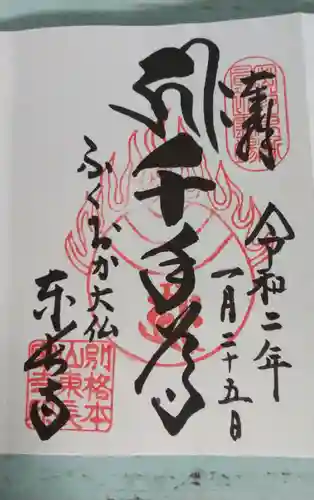 奉拝
令和二年
一月二十五日
千手尊
ふくおか大仏
東長寺
別格本
山東長